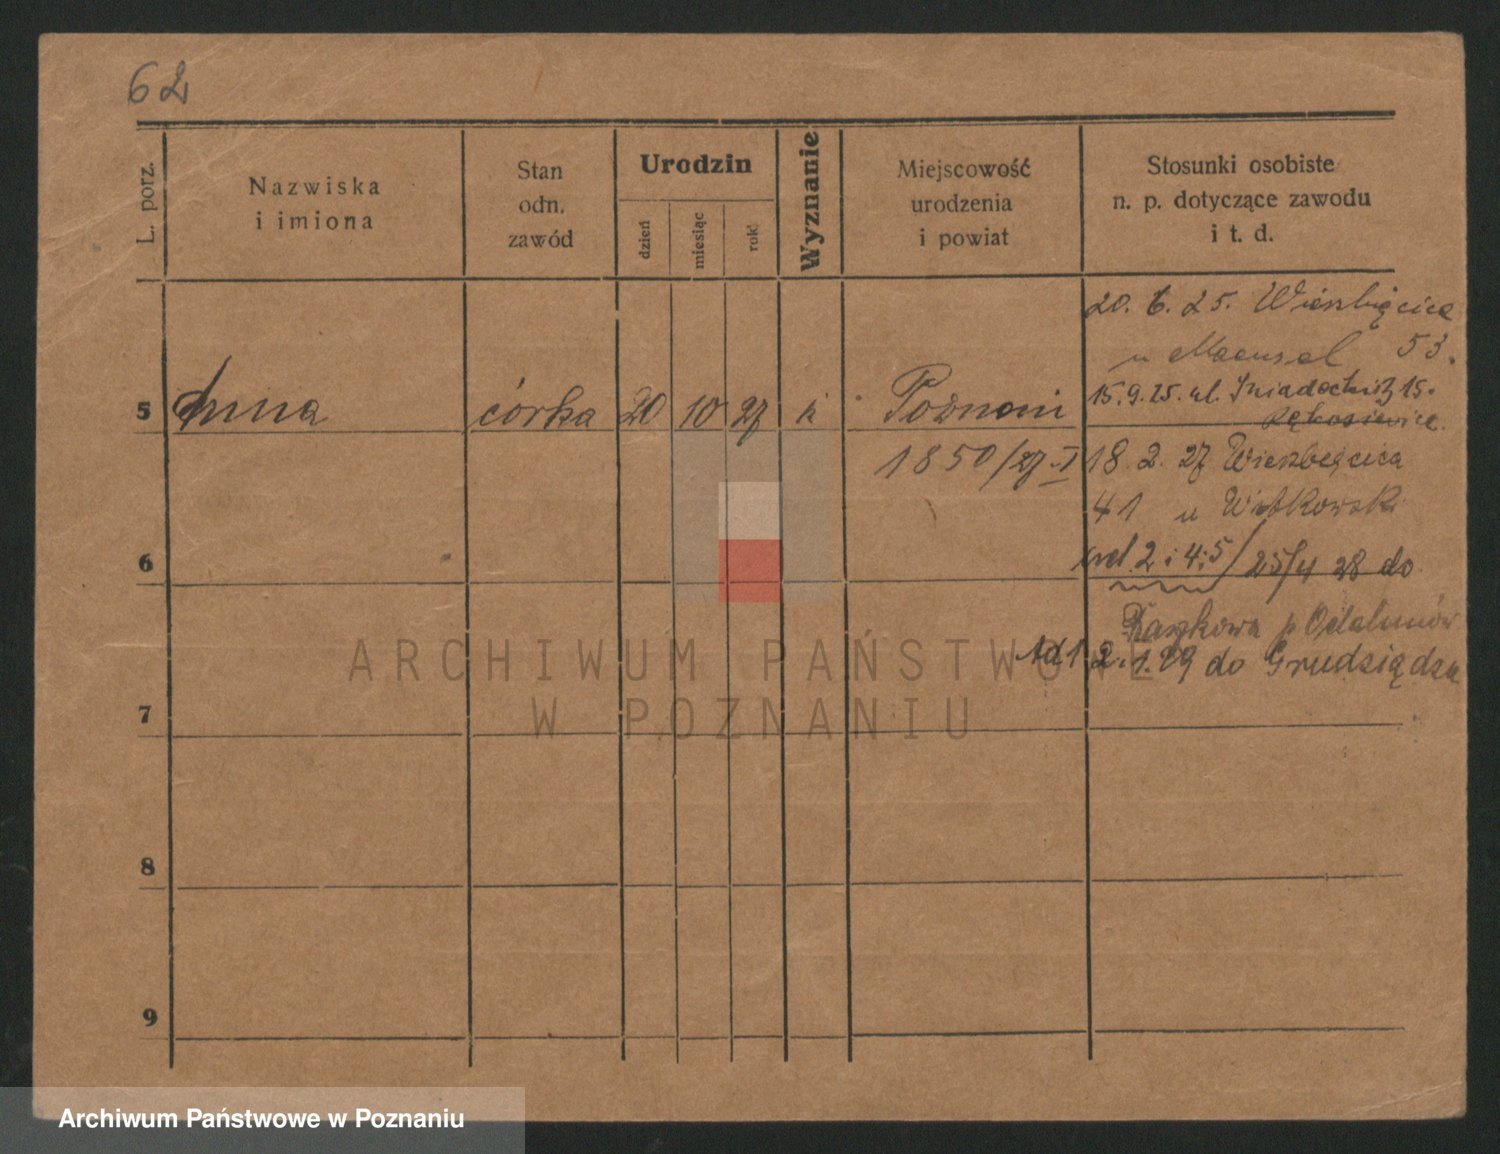 62
L. porz.
Nazwiska
i imiona
Stan
odn.
zawód
Urodzin
dzień
miesiąc
rok
Wyznanie
Miejscowość
urodzenia
i powiat
Stosunki osobiste
n. p. dotyczące zawodu
i t. d.
20. 6. 25. Wierzbięcice
u 53.
15.9.25. ul. Śniadeckich 15.
5 Anna córka 20 10 27 k Poznań
1850/27 I
18. 2. 27 Wierzbięcice
41 u Witkowski
6
ad 2 i 4 i 5/25/4 28 do
Raszkowa p Odolanów
Ad 1 2.1.29 do Grudziądza
7
8
9
ARCHIWUM PAŃSTWOWE
W POZNANIU
Archiwum Państwowe w Poznaniu